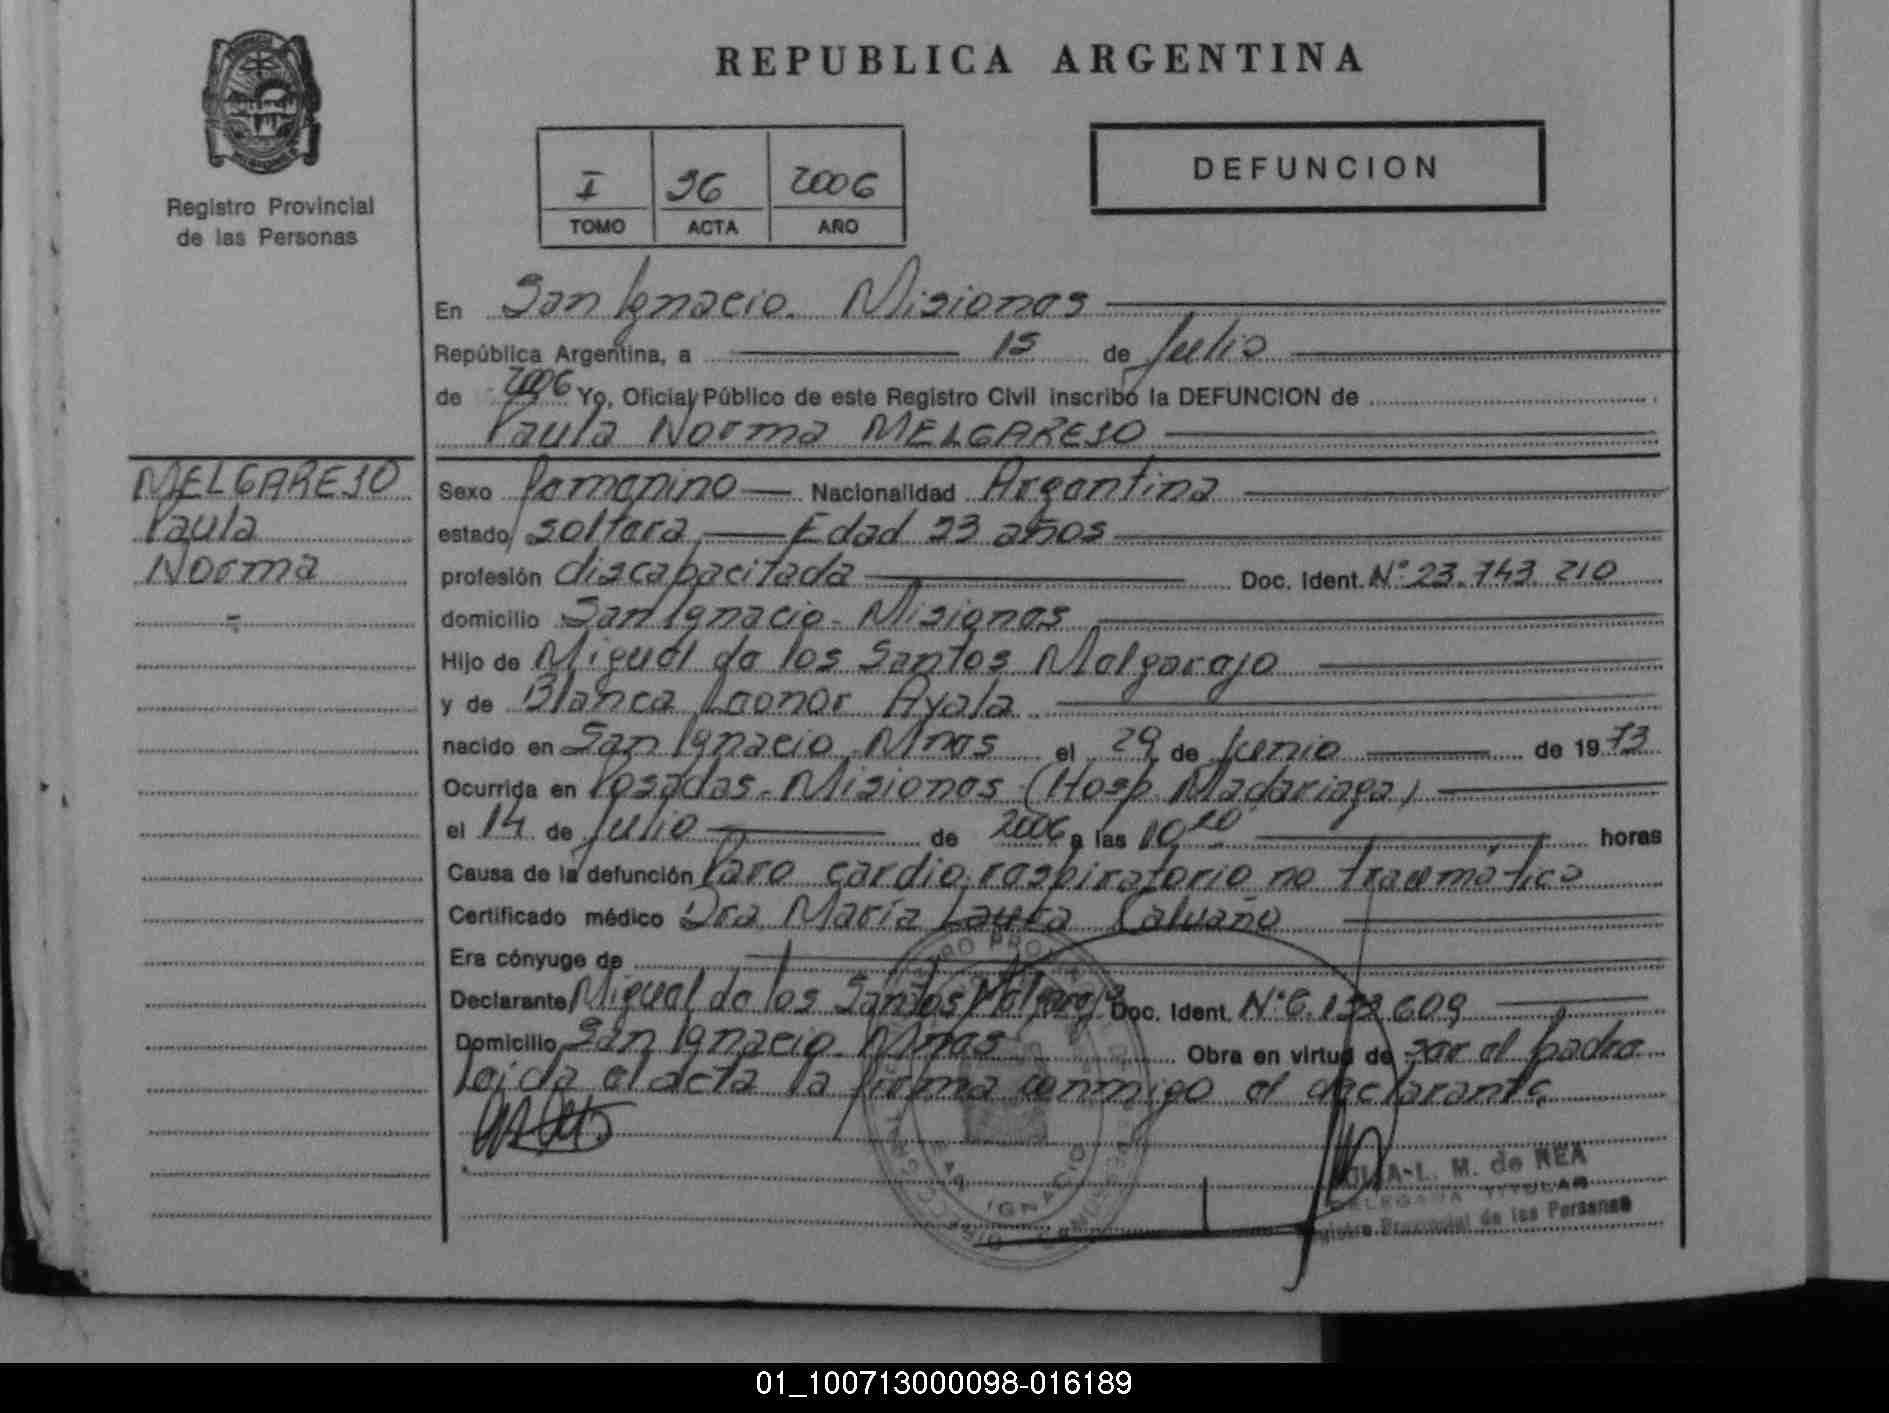 REPUBLICA ARGENTINA
Registro Provincial
de las Personas
I 36 2006
TOMO ACTA AÑO
DEFUNCION
En San Ignacio. Misiones
República Argentina, a 15 de Julio
de 2006 Yo, Oficial Público de este Registro Civil inscribo la DEFUNCION de
Paula Norma MELGAREJO
MELGAREJO
Paula
Norma
Sexo femenino Nacionalidad Argentina
estado soltera Edad 33 años
profesión discapacitada Doc. Ident. N° 23.743.210
domicilio San Ignacio - Misiones
Hijo de Miguel de los Santos Melgarejo
y de Blanca Leonor Ayala
nacido en San Ignacio Mnes el 29 de Junio de 1973
Ocurrida en Posadas - Misiones (Hosp. Madariaga)
el 14 de Julio de 2006 a las horas
Causa de la defunción Paro cardio respiratorio no traumático
Certificado médico Dra. María Laura
Era cónyuge de
Declarante Miguel de los Santos Melgarejo Doc. Ident. N°
Domicilio San Ignacio - Mnes Obra en virtud de ser el padre
Leida el acta la firma conmigo el declarante
IGNACIO
L. M. de REA
DELEGADA TITULAR
Registro Provincial de las Personas
01_100713000098-016189